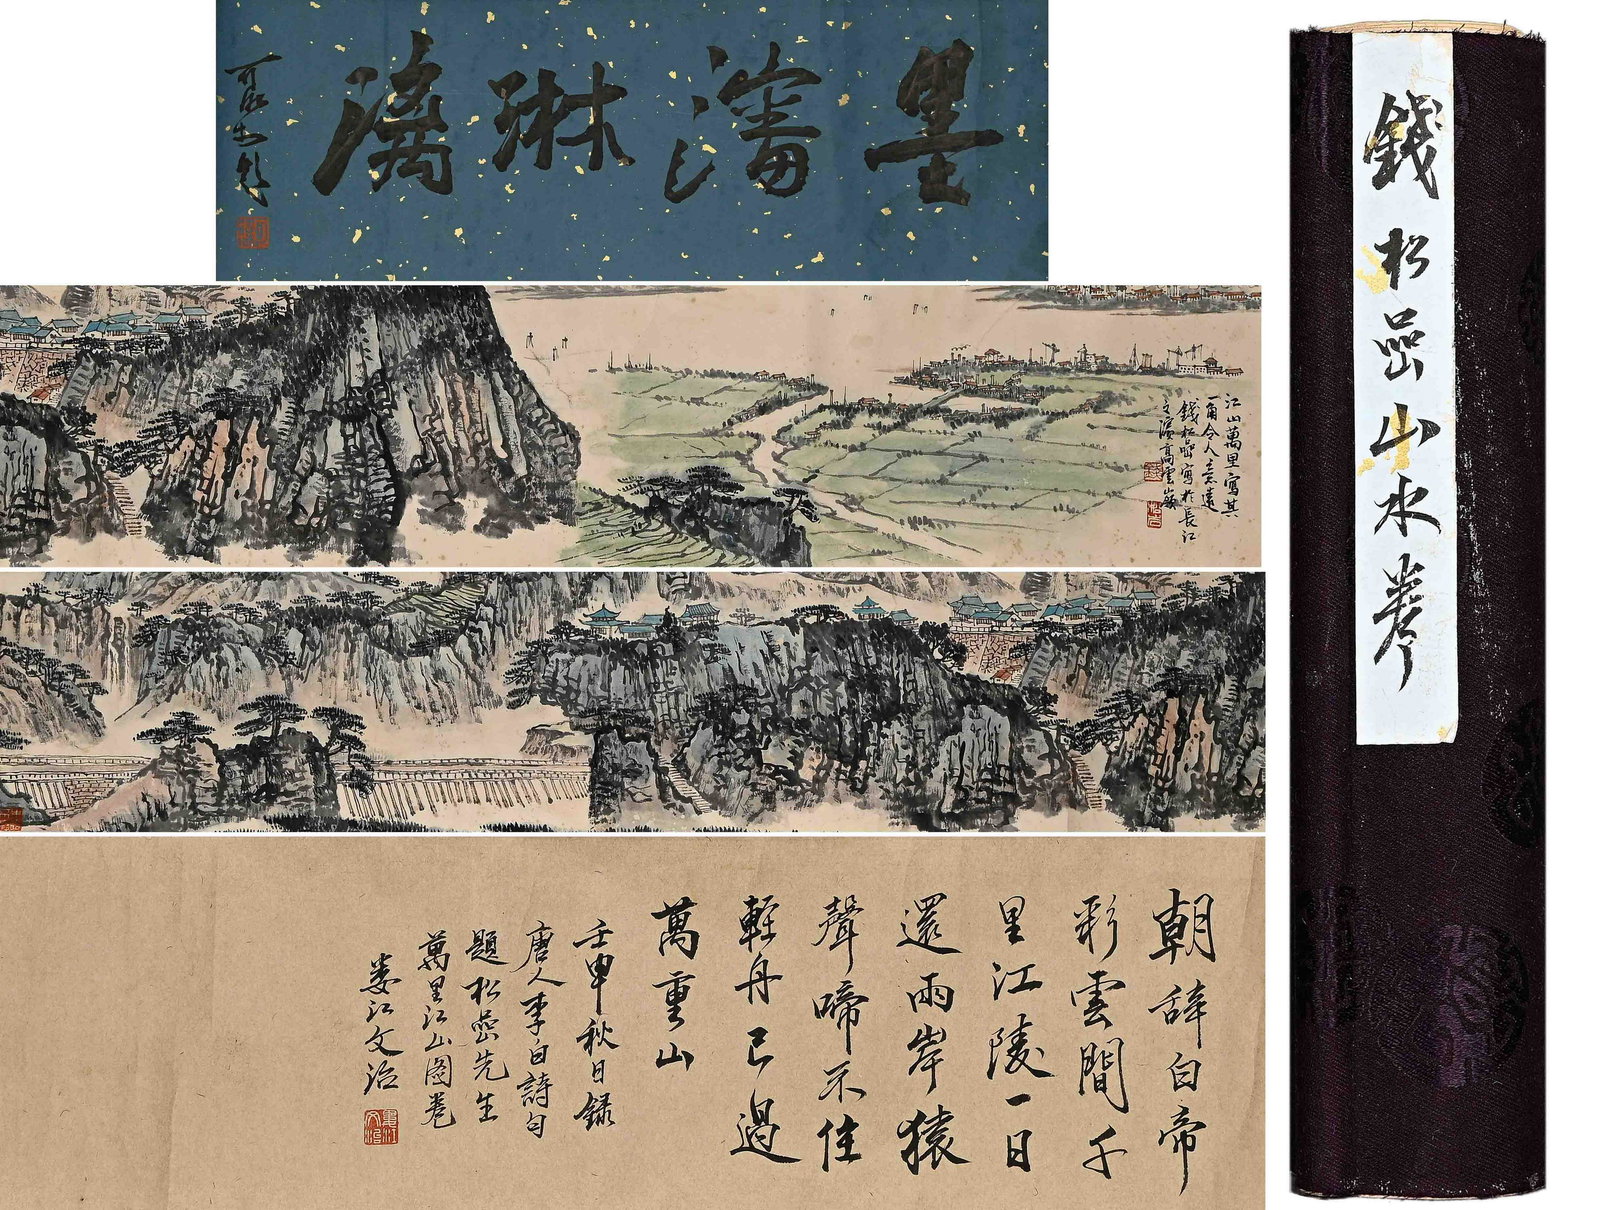 墨瀋淋漓
江山萬里寫其
一角令人意遠
錢松喦寫於長江
之濱高雲嶺
朝辭白帝
彩雲間千
里江陵一日
還兩岸猿
聲啼不住
輕舟已過
萬重山
壬申秋日錄
唐人李白詩句
題松喦先生
萬里江山圖卷
婁江文治
錢松喦山水卷